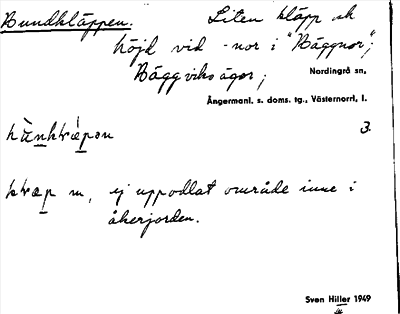 Bundkläppen. Liten kläpp ok
höjd vid -nor i "Bäggnor";
Bäggviks ägor; Nordingrå sn,
Ångermanl. s. doms. tg., Västernorrl. l.
3.
m, ej uppodlat område inne i
åkerjorden.
Sven Hiller 1949